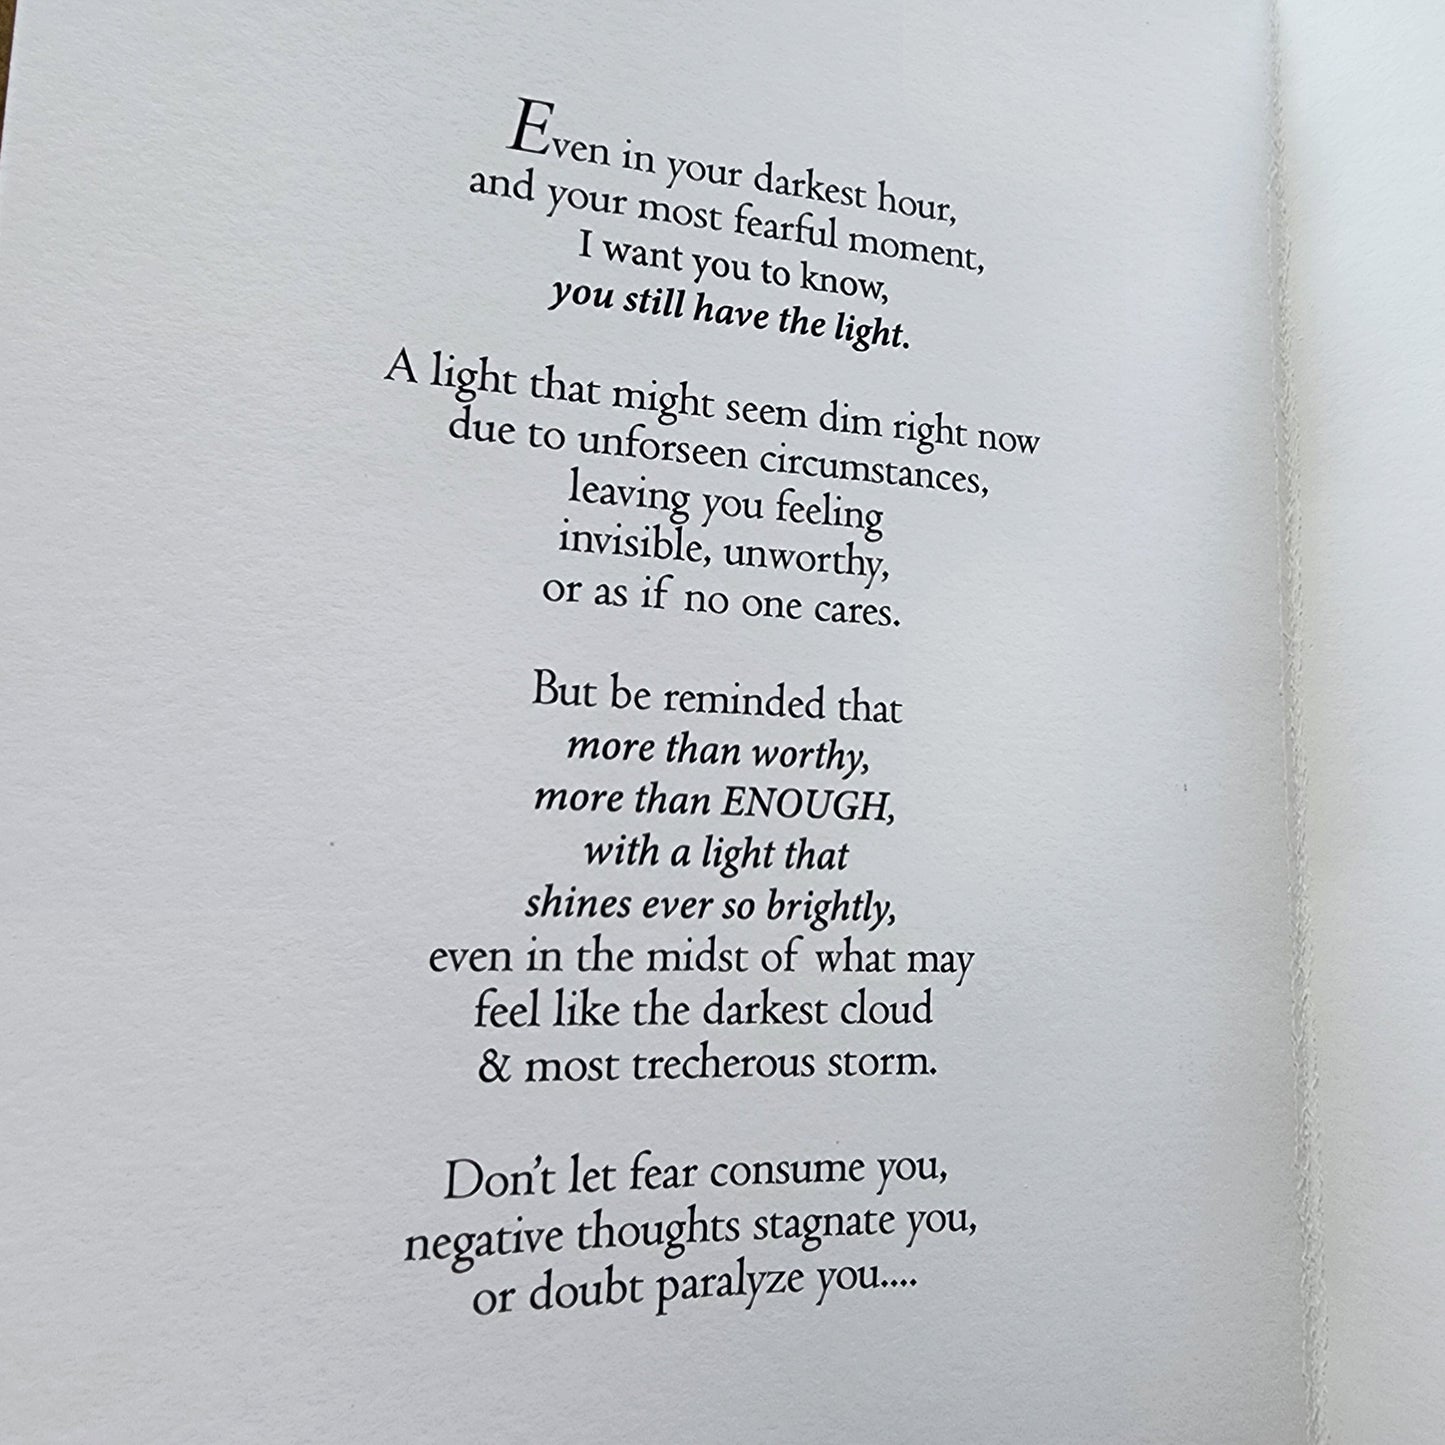 Even in your darkest hour,
and your most fearful moment,
I want you to know,
you still have the light.
A light that might seem dim right now
due to unforseen circumstances,
leaving you feeling
invisible, unworthy,
or as if no one cares.
But be reminded that
more than worthy,
more than ENOUGH,
with a light that
shines ever so brightly,
even in the midst of what may
feel like the darkest cloud
& most trecherous storm.
Don't let fear consume you,
negative thoughts stagnate you,
or doubt paralyze you....